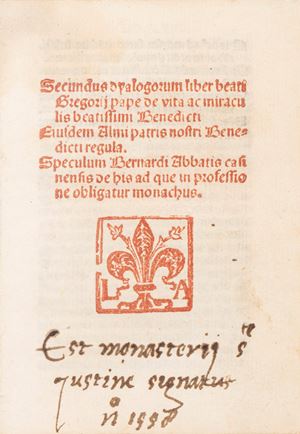 Secundus dyalogorum liber beati
Gregorij pape de vita ac miracu
lis beatissimi Benedicti
Eiusdem Almi patris nostri Bene-
dicti regula.
Speculum Bernardi Abbatis casi
nensis de his ad que in professio
ne obligatur monachus.
L A
Est monasterij S
Justine signatus